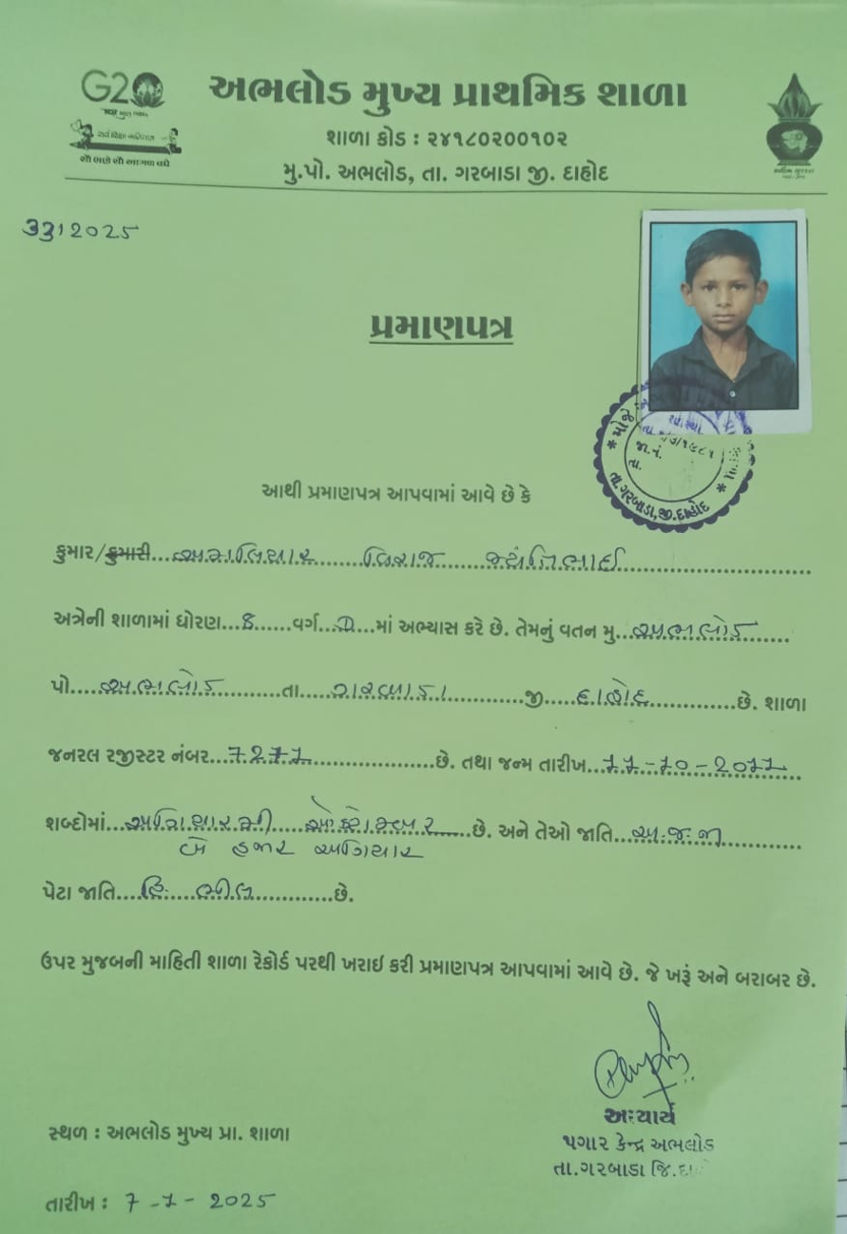 G20
અભલોડ મુખ્ય પ્રાથમિક શાળા
શાળા કોડ : ૨૪૧૮૦૨૦૦૧૦૨
મુ.પો. અભલોડ, તા. ગરબાડા જી. દાહોદ
સર્વ શિક્ષા અભિયાન
સૌ ભણે સૌ આગળ વધે
3312025
પ્રમાણપત્ર
મોજે
તા.ગરબાડા,જી.દાહોદ
જા.નં.
તા.
આથી પ્રમાણપત્ર આપવામાં આવે છે કે
કુમાર/કુમારી... .......................
અત્રેની શાળામાં ધોરણ...8......વર્ગ.......માં અભ્યાસ કરે છે. તેમનું વતન મુ...અભલોડ.......
પો....અભલોડ............તા....ગરબાડા............જી.....દાહોદ............છે. શાળા
જનરલ રજીસ્ટર નંબર...7277..................છે. તથા જન્મ તારીખ...11-10-2011
શબ્દોમાં...અગિયારમી.....ઓક્ટોમ્બર......છે. અને તેઓ જાતિ...અ.જ.જા...........
બે હજાર અગિયાર
પેટા જાતિ....હિ.....ભીલ............છે.
ઉપર મુજબની માહિતી શાળા રેકોર્ડ પરથી ખરાઇ કરી પ્રમાણપત્ર આપવામાં આવે છે. જે ખરૂં અને બરાબર છે.
આચાર્ય
સ્થળ : અભલોડ મુખ્ય પ્રા. શાળા
પગાર કેન્દ્ર અભલોડ
તા.ગરબાડા જિ.
તારીખ : 7-1-2025